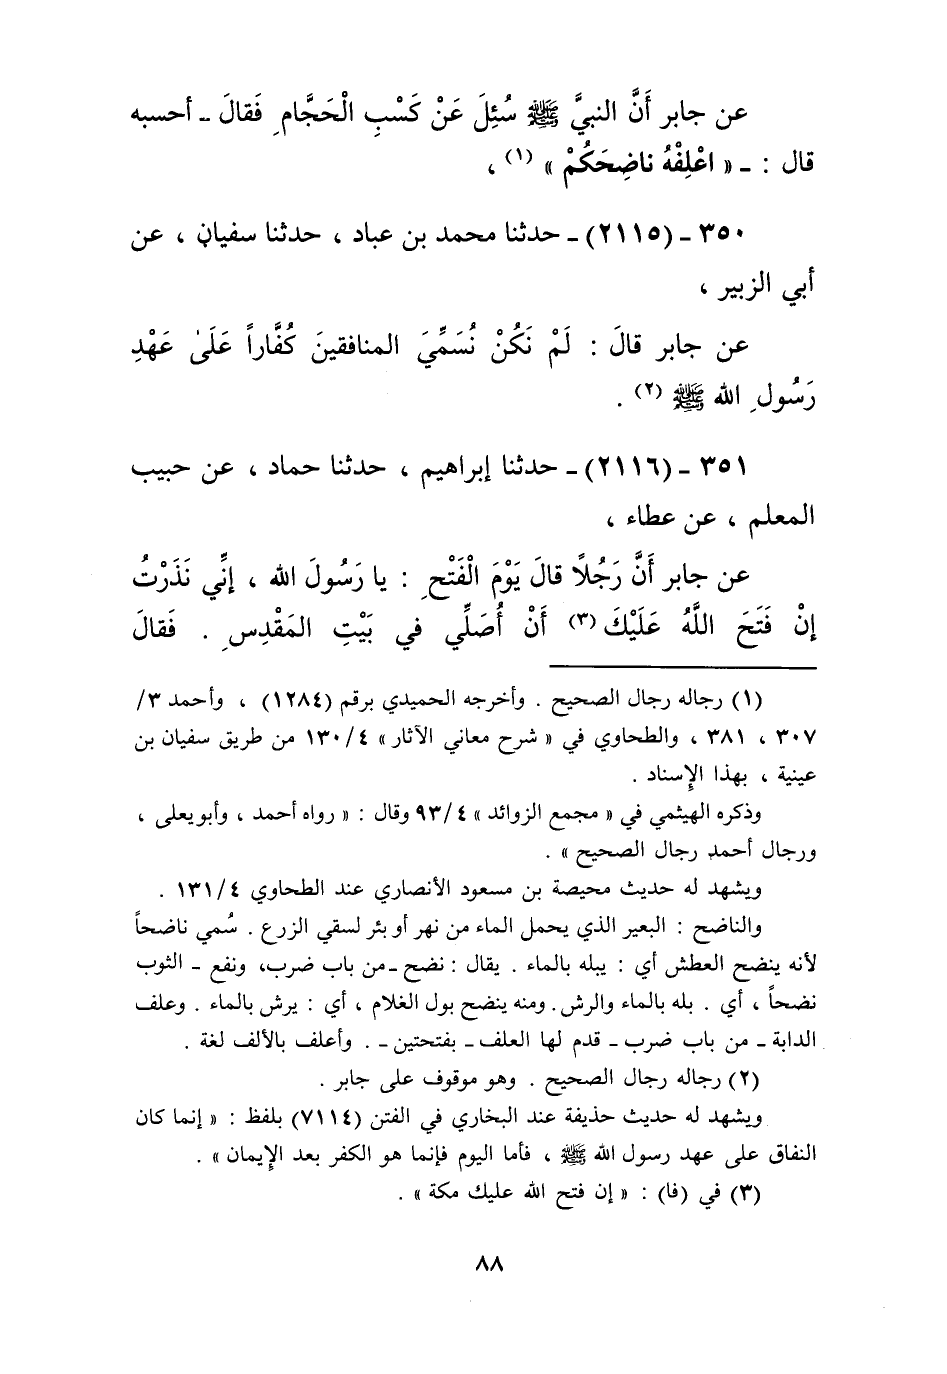 عن جابر أَنَّ النبيَّ ﷺ سُئِلَ عَنْ كَسْبِ الْحَجَّامِ فَقالَ ـ أحسبه
قال : ـ « اعْلِفْهُ ناضِحَكُمْ » (١) ،
٣٥٠ ـ (٢١١٥) ـ حدثنا محمد بن عباد ، حدثنا سفيان ، عن
أبي الزبير ،
عن جابر قالَ : لَمْ نَكُنْ نُسَمِّيَ المنافقينَ كُفَّاراً عَلَىٰ عَهْدِ
رَسُولِ الله ﷺ (٢) .
٣٥١ ـ (٢١١٦) ـ حدثنا إبراهيم ، حدثنا حماد ، عن حبيب
المعلم ، عن عطاء ،
عن جابر أَنَّ رَجُلاً قالَ يَوْمَ الْفَتْحِ : يا رَسُولَ الله ، إنِّي نَذَرْتُ
إنْ فَتَحَ اللَّهُ عَلَيْكَ (٣) أَنْ أُصَلِّي في بَيْتِ المَقْدِسِ . فَقالَ
(١) رجاله رجال الصحيح . وأخرجه الحميدي برقم (١٢٨٤) ، وأحمد ٣/
٣٠٧ ، ٣٨١ ، والطحاوي في « شرح معاني الآثار » ١٣٠/٤ من طريق سفيان بن
عينية ، بهذا الإسناد .
وذكره الهيثمي في « مجمع الزوائد » ٩٣/٤ وقال : « رواه أحمد ، وأبو يعلى ،
ورجال أحمد رجال الصحيح » .
ويشهد له حديث محيصة بن مسعود الأنصاري عند الطحاوي ١٣١/٤ .
والناضح : البعير الذي يحمل الماء من نهر أو بئر لسقي الزرع . سُمي ناضحاً
لأنه ينضح العطش أي : يبله بالماء . يقال : نضح ـ من باب ضرب، ونفع ـ الثوب
نضحاً ، أي . بله بالماء والرش. ومنه ينضح بول الغلام ، أي : يرش بالماء . وعلف
الدابة ـ من باب ضرب ـ قدم لها العلف ـ بفتحتين ـ . وأعلف بالألف لغة .
(٢) رجاله رجال الصحيح . وهو موقوف على جابر .
ويشهد له حديث حذيفة عند البخاري في الفتن (٧١١٤) بلفظ : « إنما كان
النفاق على عهد رسول الله ﷺ ، فأما اليوم فإنما هو الكفر بعد الإيمان » .
(٣) في (فا) : « إن فتح الله عليك مكة » .
٨٨